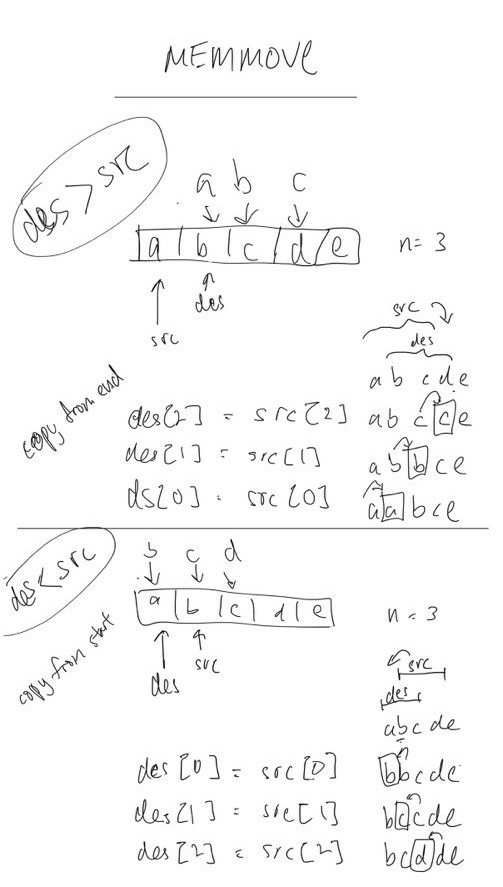 MEMMOVE
des > src
a b c
a b c d e
n = 3
src
des
src
des
a b c d e
copy from end
des[2] = src[2] a b c c e
des[1] = src[1] a b b c e
ds[0] = src[0] a a b c e
des < src
b c d
a b c d e
n = 3
copy from start
des
src
src
des
a b c d e
des[0] = src[0] b b c d e
des[1] = src[1] b c c d e
des[2] = src[2] b c d d e